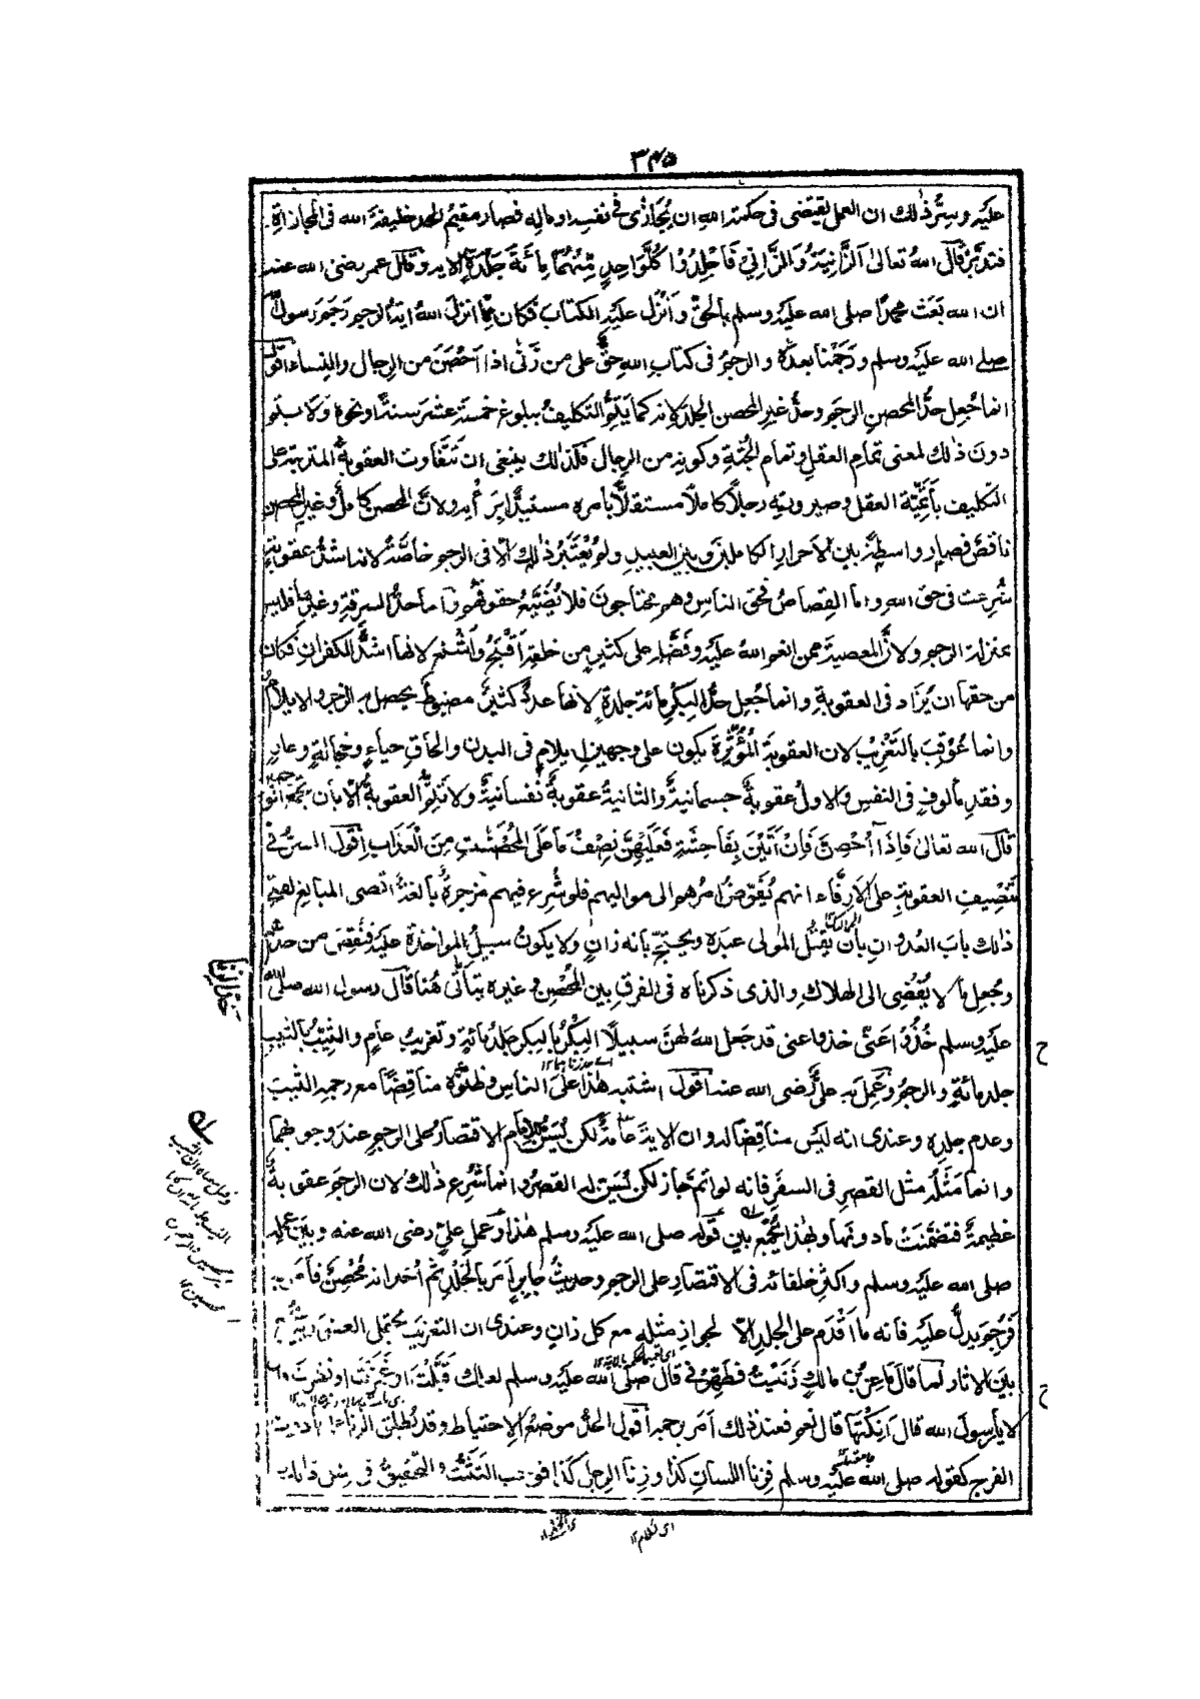 ٣٤٥
عليه وسِرُّ ذٰلك ان العمل يقتضى فى حكمة الله ان يُجازٰى فى نفسه او ماله فصار مقيمُ الحد خليفةَ الله فى المجازاة
فتدبَّر قال اللهُ تعالىٰ اَلزَّانِيَةُ وَالزَّانِيْ فَاجْلِدُوْا كُلَّ وَاحِدٍ مِّنْهُمَا مِائَةَ جَلْدَةٍ الاية وقال عمر رضى الله عنه
ان الله بَعَثَ محمدًا صلى الله عليه وسلم بالحق وَاَنْزَلَ عليه الكتاب فكان مما انزل اللهُ ايةُ الرجم رَجَمَ رسولُ الله
صلى الله عليه وسلم ورَجَمْنا بعدَه والرجمُ فى كتاب الله حقٌّ على من زَنٰى اذا اَحْصَنَ من الرجال والنساء اقول
انما جُعِل حدُّ المحصنِ الرجمَ وحدُّ غيرِ المحصن الجلدَ لانه كما يَتِمُّ التكليفُ ببلوغ خمسةَ عشَرَ سنةً او نحوه ولا يتم
دون ذٰلك لمعنى تمام العقل وتمام الجُثّة وكونه من الرجال فكذٰلك ينبغى ان تتفاوت العقوبةُ المترتبة على
التكليف بأتمّية العقل وصيرورته رجلًا كاملًا مستقلًّا بأمره مستبدًّا برأيه ولانَّ المحصن كامل وغير المحصن
ناقصٌ فصار واسطةً بين الاحرار الكاملين وبين العبيد ولم يُعْتَبَرْ ذٰلك الّا فى الرجم خاصّةً لانه اشدُّ عقوبةٍ
شُرِعت فى حق الله واما القِصاصُ فحق الناس وهم محتاجون فلا يُضَيَّعُ حقوقُهم واما حدُّ السرقة وغيرِها فليس
بمنزلة الرجم ولانَّ المعصية ممن انعم اللهُ عليه وفَضَّله على كثير من خلقه اَقْبَحُ واَشْنَعُ لانها اشدُّ الكفران فكان
من حقها ان يُزاد فى العقوبة وانما جُعِل حدُّ البِكْرِ مائةَ جلدةٍ لانها عددٌ كثيرٌ مضبوطٌ يحصل به الزجر والايلام
وانما عُوْقِبَ بالتَّغْرِيْب لان العقوبةَ المُؤَثِّرةَ يكون على وجهين ايلامٍ فى البدن والحاقِ حياءٍ وخجالةٍ وعارٍ
وفقدِ مألوفٍ فى النفس والاولُ عقوبةٌ جسمانيةٌ والثانيةُ عقوبةٌ نفسانيةٌ ولا تتمُّ العقوبةُ الّا بأن تجمع
قال الله تعالىٰ فَاِذَآ اُحْصِنَّ فَاِنْ اَتَيْنَ بِفَاحِشَةٍ فَعَلَيْهِنَّ نِصْفُ مَا عَلَى الْمُحْصَنٰتِ مِنَ الْعَذَابِ اقول السرُّ فى
تنصيف العقوبة على الارِقّاء انهم يُفَوَّضُ امرُهم الى مواليهم فلو شُرِع فيهم مزجرةٌ بالغةٌ اقصى المبالغ لفتح
ذٰلك بابَ العُدوان بأن يقتُل المولى عبدَه ويحتجّ بأنه زانٍ ولا يكونُ سبيلُ المواخذة عليه فنُقِص من حدّهم
وجُعِل ما لا يُفْضِى الى الهلاك والذى ذكرناه فى الفرق بين المُحْصِن وغيره يتأتّى هُنا قال رسول الله صلى الله
عليه وسلم خُذُوا عَنّى خذوا عنى قد جَعل الله لهن سبيلًا البِكْرُ بالبكر جلدُ مائةٍ وتغريبُ عامٍ والثيّبُ بالثيب
جلدُ مائةٍ والرجمُ وعَمِل به علىٌّ رضى الله عنه اقول اشتبه هٰذا على الناس وظنّوه مناقِضًا مع رجمه الثيب
وعدمِ جلدِه وعندى انه ليس مناقِضًا له وان الاية عامّة لكن يُسَنّ للامام الاقتصارُ على الرجم عند وجوبهما
وانما مَثَلُه مثل القصر فى السفر فانه لو اتم جاز لكن يُسَنّ له القصر وانما شُرِع ذٰلك لان الرجمَ عقوبةٌ
عظيمةٌ فتضمّنت ما دونها وبهٰذا يُجْمَع بين قوله صلى الله عليه وسلم هٰذا وعملِ علىٍّ رضى الله عنه وبين عمله
صلى الله عليه وسلم واكثرِ خلفائه فى الاقتصار على الرجم وحديثُ جابرٍ اَمَر بالجَلْد ثم اُخبر انه مُحْصِنٌ فأمر به
فرُجِم يدلُّ عليه فانه ما اَقْدَم على الجلد الّا لجواز مثله مع كل زانٍ وعندى ان التغريب يحتمل العفو
بين الاثار لما قال ماعِزُ بنُ مالكٍ زَنَيْتُ فطهِّرنى قال صلى الله عليه وسلم لعلك قَبَّلْتَ او غَمَزْتَ او نظرتَ قال
لا يا رسول الله قال اَنِكْتَها قال نعم فعند ذٰلك اَمَر برجمه اقول الحدُّ موضعُ الاحتياط وقد يُطلق الزنا على ما دون
الفرج كقوله صلى الله عليه وسلم فزنا اللسان كذا وزِنا الرجل كذا فوجب التثبُّتُ والتحقيقُ فى مثل ذٰلك
حدّ الزنا